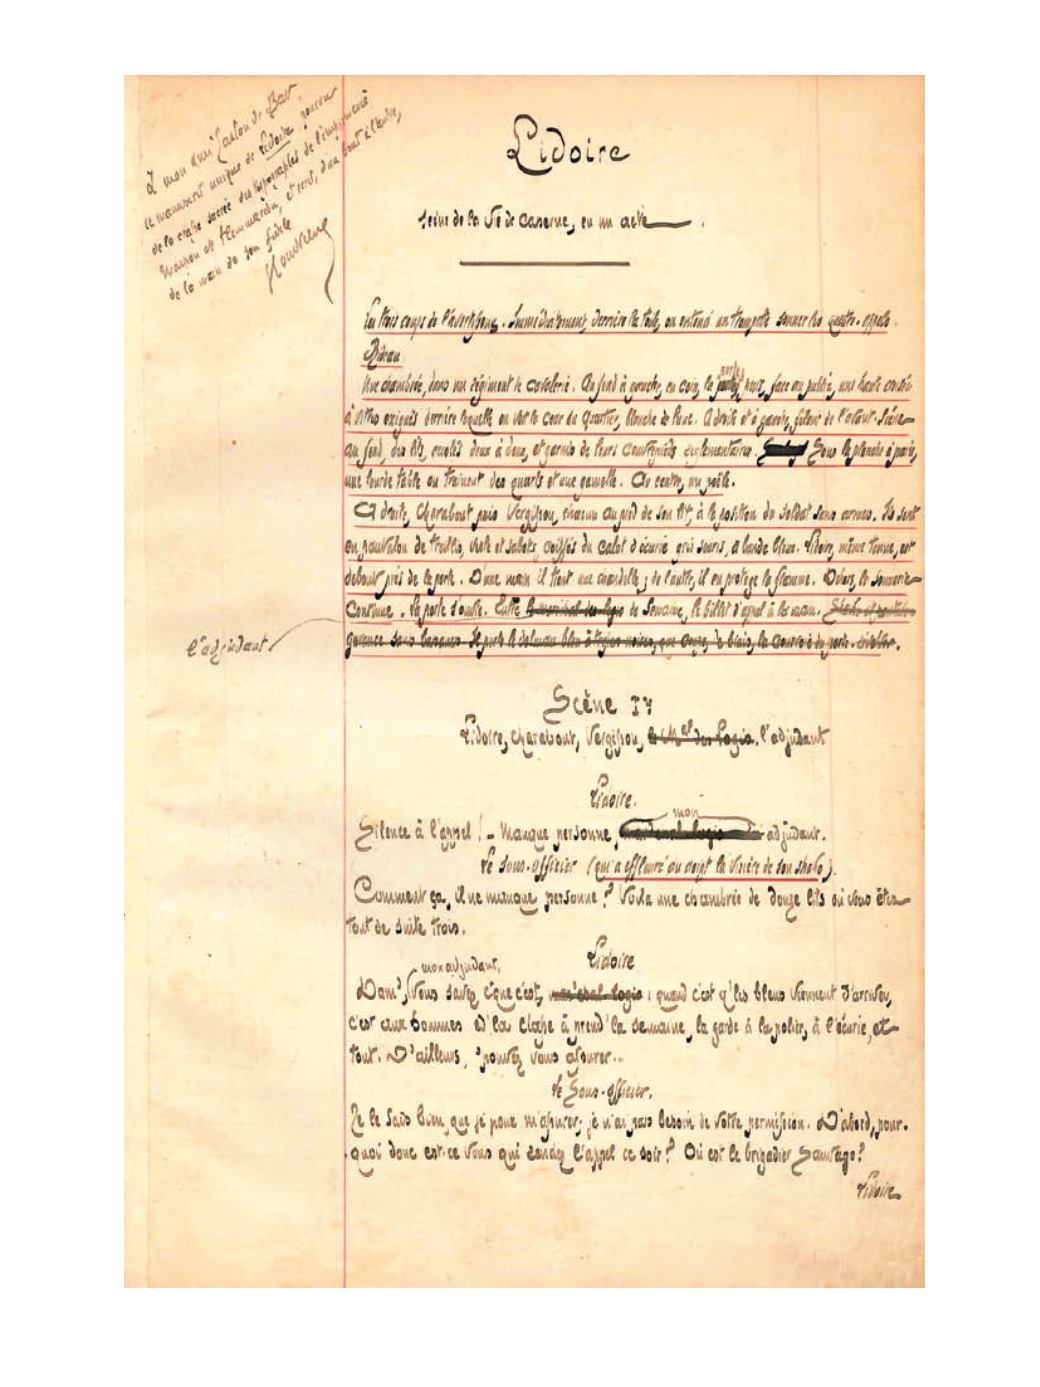 A mon ami Gaston de Bar
ce manuscrit unique de Lidoire pourvu
de la crasse sacrée des typographes de l'imprimerie
Marpon et Flammarion, et écrit, d'un bout à l'autre,
de la main de son fidèle
Lidoire
Scène de la Vie de Caserne, en un acte
Les trois coups de l'avertisseur. Immédiatement, derrière la toile, on entend un trompette sonner les quatre appels.
Rideau
Une chambrée, dans un régiment de cavalerie. Au fond à gauche, en coin, la porte; puis, face au public, une haute croisée
à vitres exiguës derrière laquelle on voit la cour du Quartier, blanche de lune. A droite et à gauche, filant de l'avant-Scène
au fond, des lits, accolés deux à deux, et garnis de leurs couvrepieds réglementaires. Sous la planche à pain,
une lourde table où traînent des quarts et une gamelle. Au centre, un poêle.
A droite, Charabout puis Vergisson, chacun au pied de son lit, à la position du soldat sans armes. Ils sont
en pantalon de treillis, veste et sabots, coiffés du calot d'écurie gris souris, à bande bleue. Lidoire, même tenue, est
debout près de la porte. D'une main il tient une chandelle; de l'autre, il en protège la flamme. Dehors, la sonnerie
continue. La porte s'ouvre. Entre le maréchal des logis de Semaine, le billet d'appel à la main. Shako et pantalon
garance sans basanes. Il porte le dolman bleu à tresses noires, que coupe, de biais, la courroie du porte-
l'adjudant
Scène I
Lidoire, Charabout, Vergisson, le Mal des Logis, l'adjudant
Lidoire.
Silence à l'appel! - Manque personne, mon adjudant.
Le Sous-officier (qui a effleuré du doigt la visière de son shako).
Comment ça, il ne manque personne? Voilà une chambrée de douze lits où vous êtes
tout de suite trois.
Lidoire
mon adjudant,
Dam', Vous savez c'que c'est, mar'chal-logis : quand c'est q'les bleus viennent d'arriver,
c'est aux hommes ed' la classe à prend' la semaine, la garde à la police, à l'écurie, et
tout. D'ailleurs, 'pouvez vous assurer...
Le Sous-officier.
Je le sais bien, que je peux m'assurer; je n'ai pas besoin de votre permission. D'abord, pour-
quoi donc est-ce vous qui rendez l'appel ce soir? Où est le brigadier Sauvage?
Lidoire